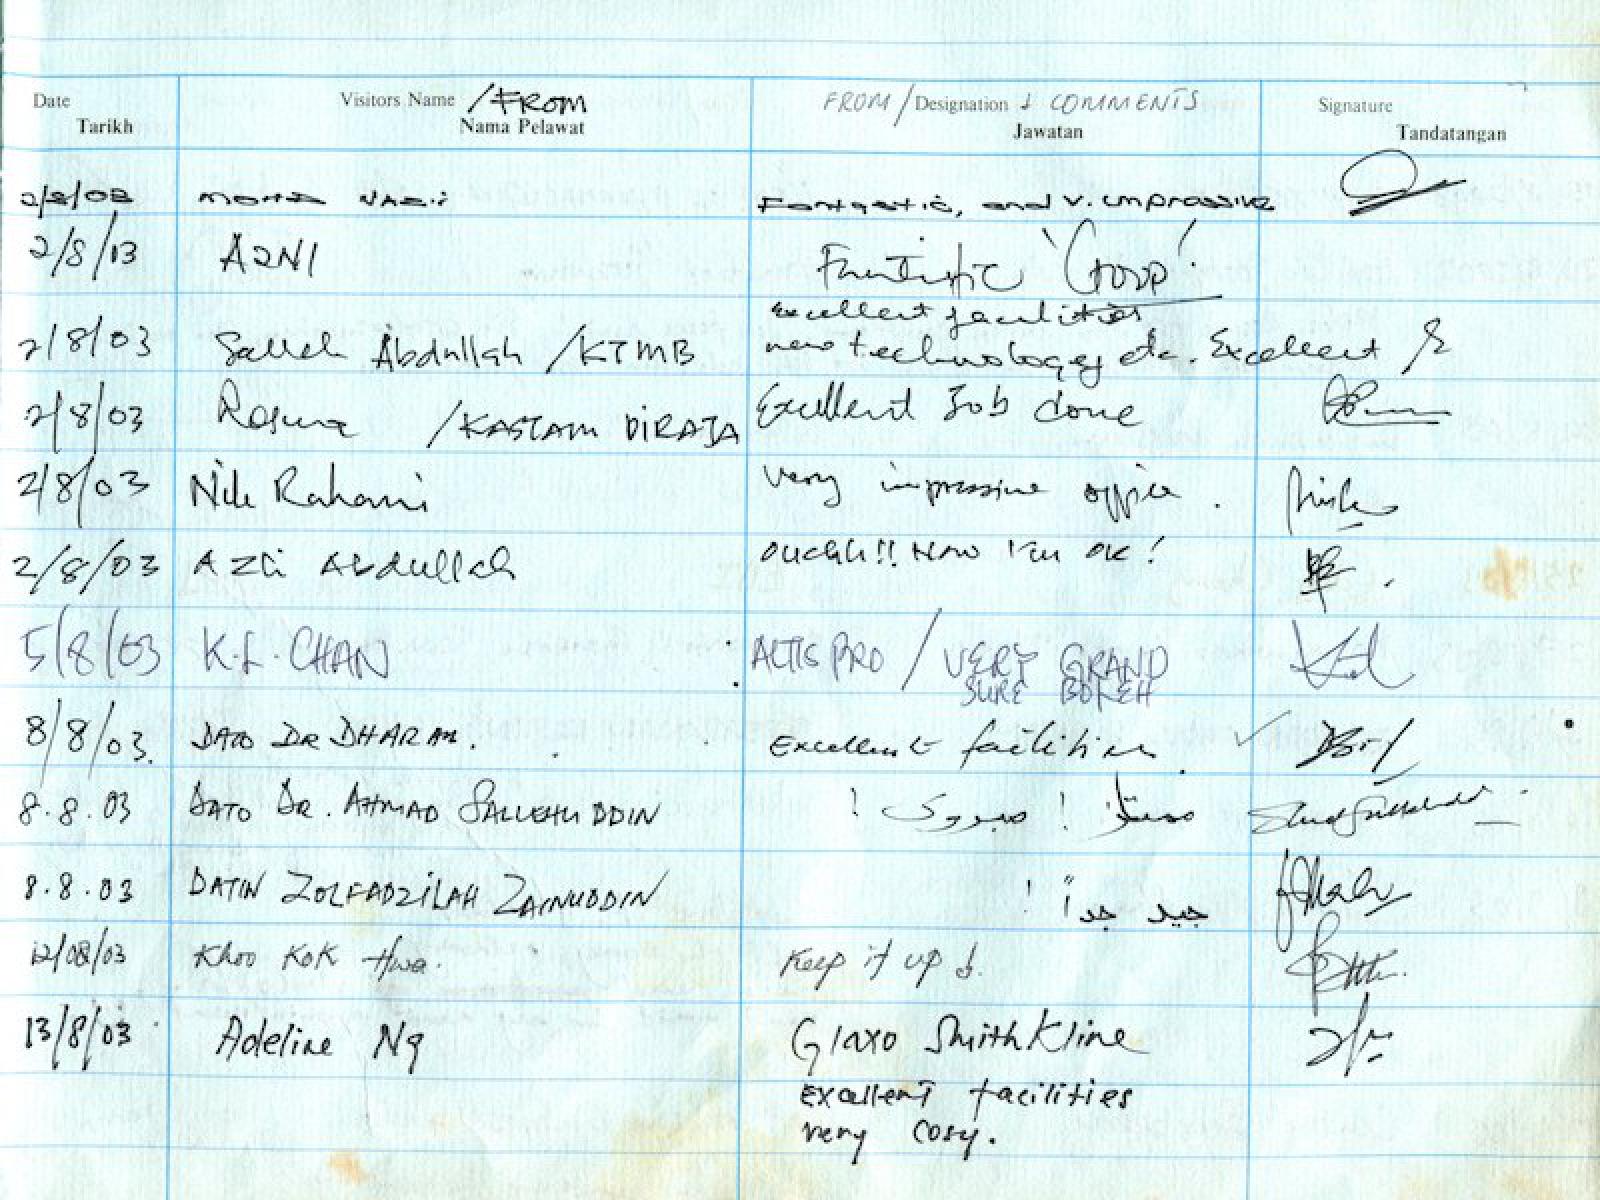 Date Visitors Name /FROM FROM / Designation & COMMENTS Signature
Tarikh Nama Pelawat Jawatan Tandatangan
2/8/03 MOHD NAZI Fantastic, and v. impressive
2/8/13 AZNI Fantastic 'Good'!
excellent facilities
2/8/03 Salleh Abdullah /KTMB new technology etc. Excellent
2/8/03 /KASTAM DIRAJA Excellent Job done
2/8/03 Nik Rahami very impressive office.
2/8/03 Azli Abdullah ouchh!! Now I'm ok!
5/8/03 K.L. CHAN ALTIS PRO / VERY GRAND
SURE BOLEH
8/8/03. DATO DR DHARAM. Excellent facilities.
8.8.03 DATO DR. AHMAD SALLEHUDDIN ممتاز ! مبروك !
8.8.03 DATIN ZOLFADZILAH ZAINUDDIN جيد جداً !
12/08/03 Khoo Kok Hwa. Keep it up!
13/8/03 Adeline Ng Glaxo SmithKline
Excellent facilities
very cosy.